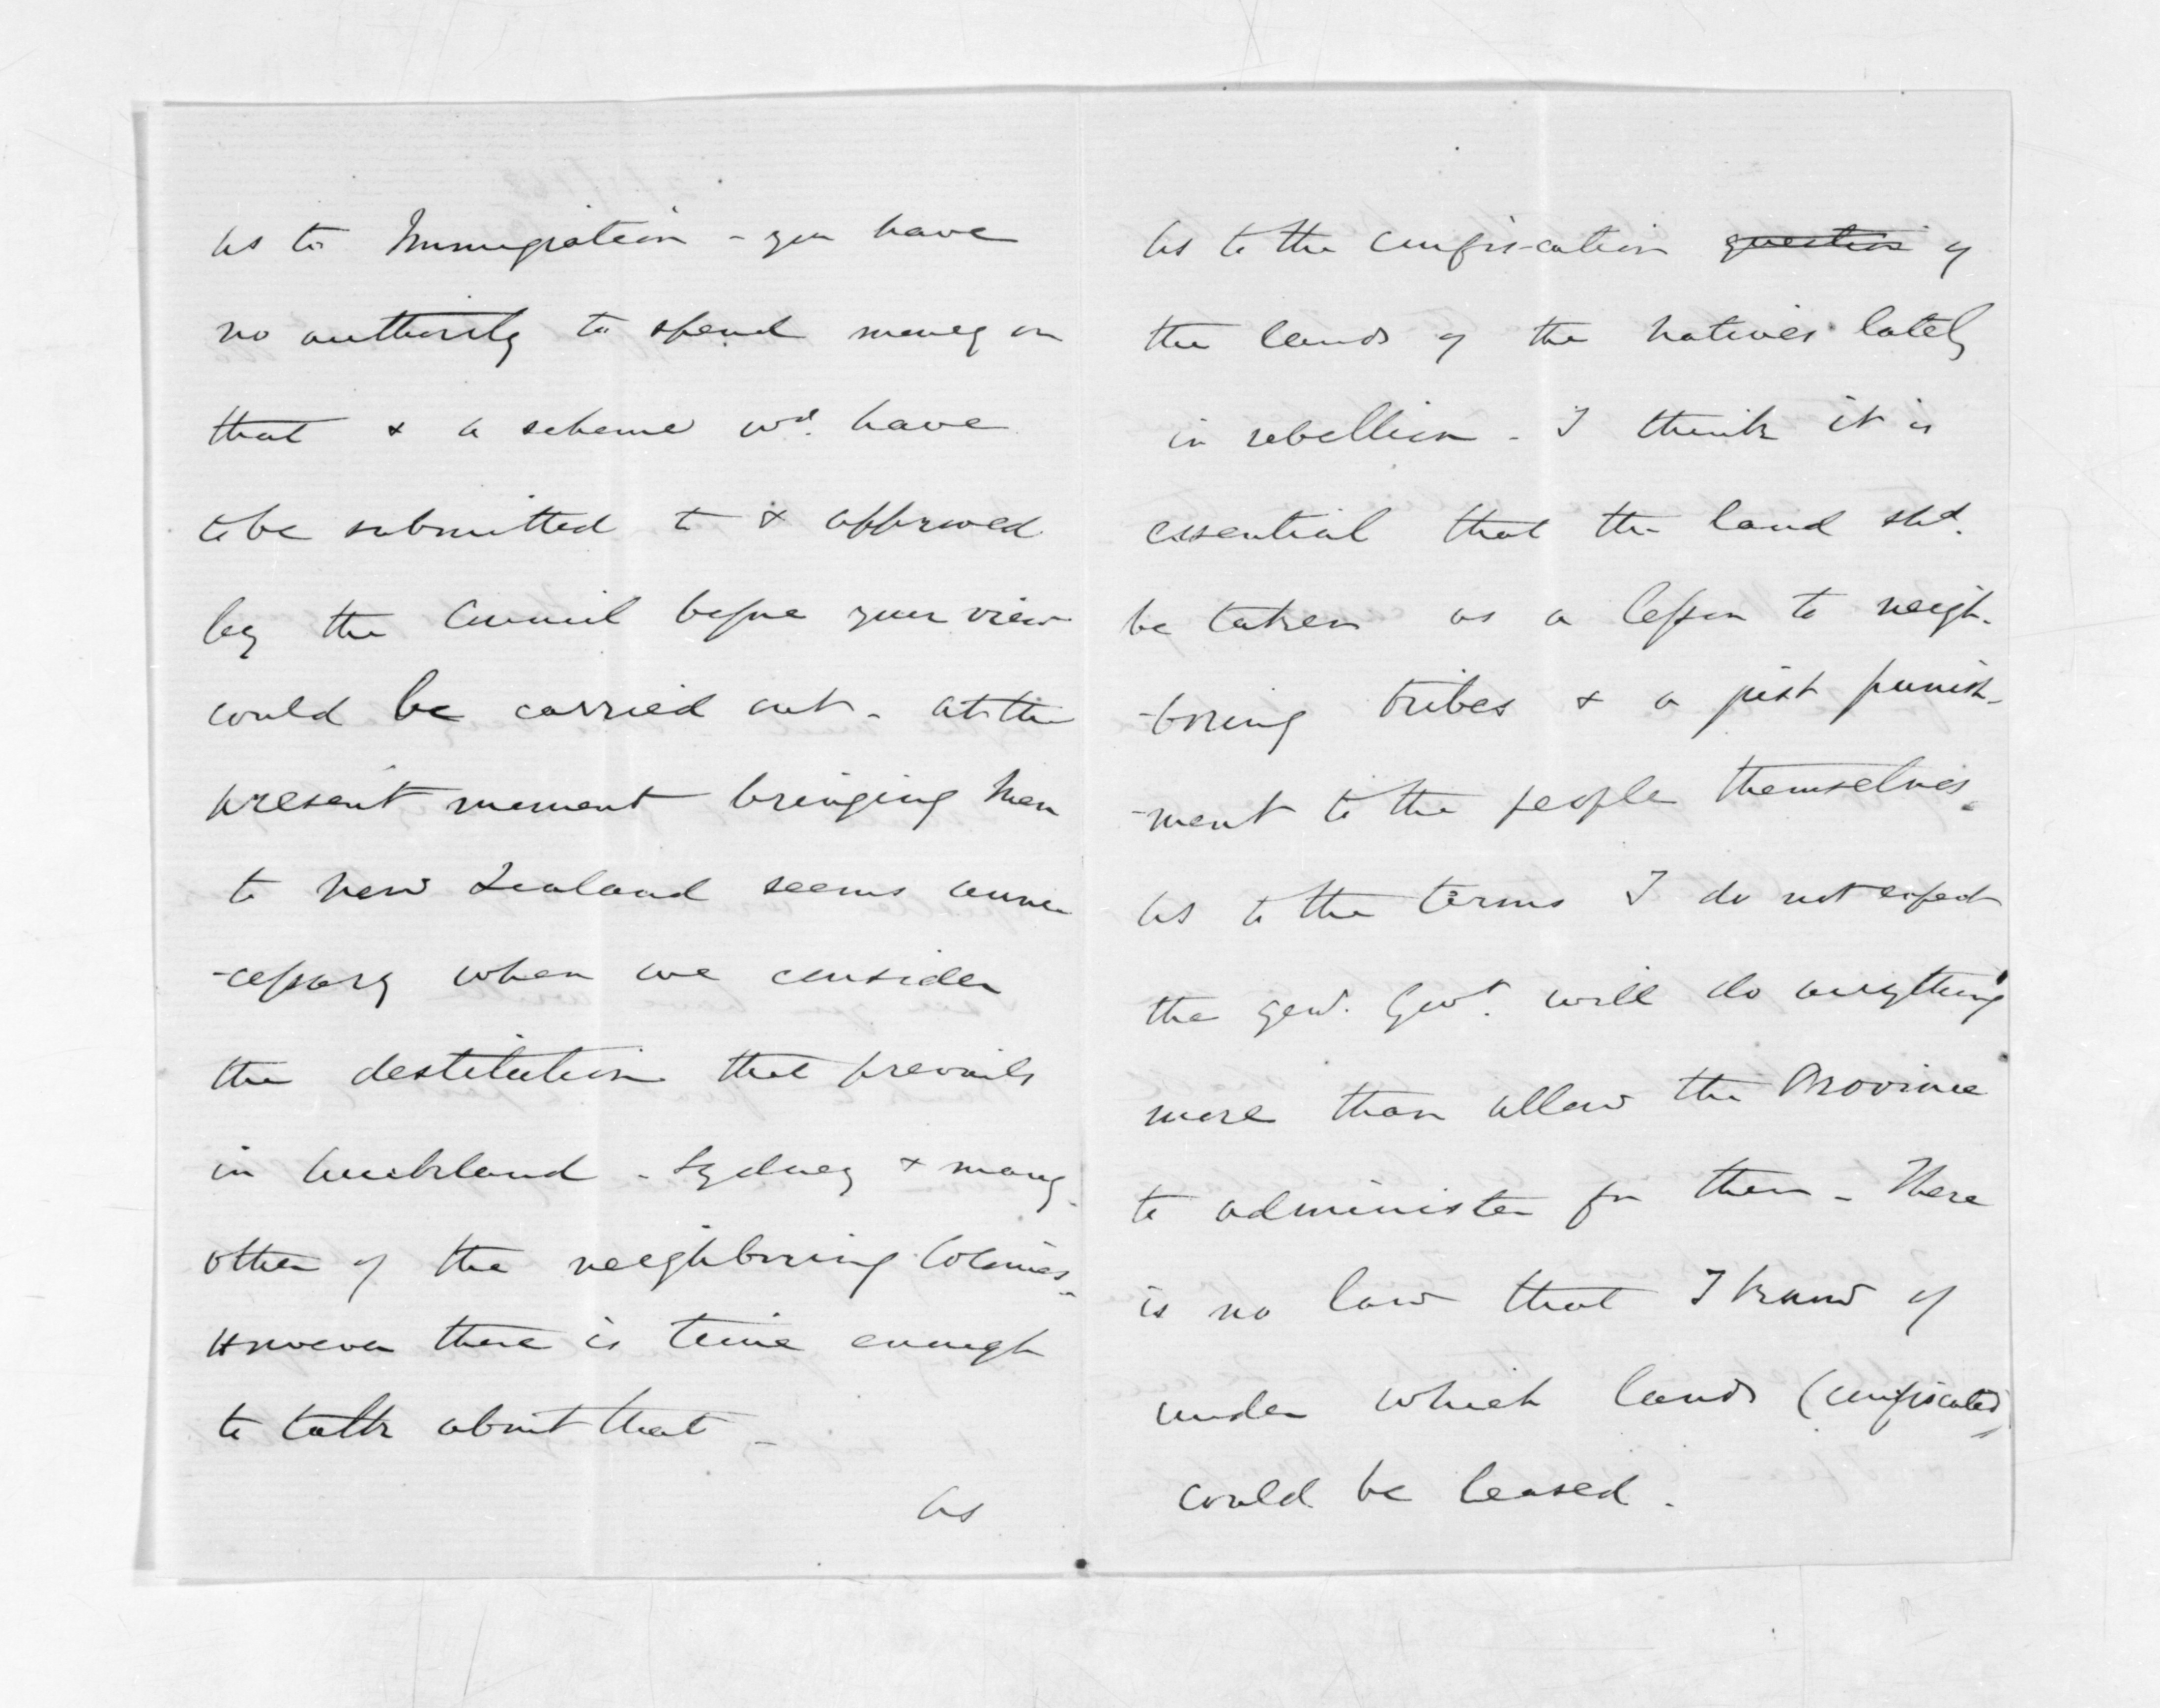 As to Immigration - you have
no authority to spend money on
that & a scheme wd. have
to be submitted to & approved
by the Council before your view
could be carried out - at the
present moment bringing men
to New Zealand seems unne
-cessary when we consider
the destitution that prevails
in Auckland - Sydney & many
other of the neighboring Colonies.
However there is time enough
to talk about that -
As
As to the confiscation ~~question~~ of
the lands of the natives lately
in rebellion - I think it is
essential that the land shd.
be taken as a lesson to neigh-
-boring tribes & a just punish-
-ment to the people themselves.
As to the terms I do not expect
the Genl. Govt. will do anything
more than allow the Province
to administer for them - There
is no law that I know of
under which lands (confiscated)
could be leased.